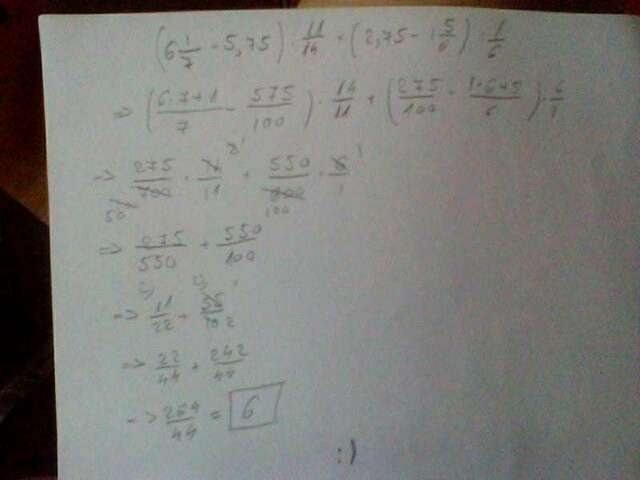 (6 1/7 - 5,75) · 11/14 + (2,75 - 1 5/6) · 1/6
=> (6·7+1/7 - 575/100) · 14/11 + (275/100 - 1·6+5/6) · 6/1
=> 275/700 · 14/11 + 550/600 · 6/1
=> 275/550 + 550/100
=> 11/22 + 55/10
=> 22/44 + 242/44
=> 264/44 = 6
:)